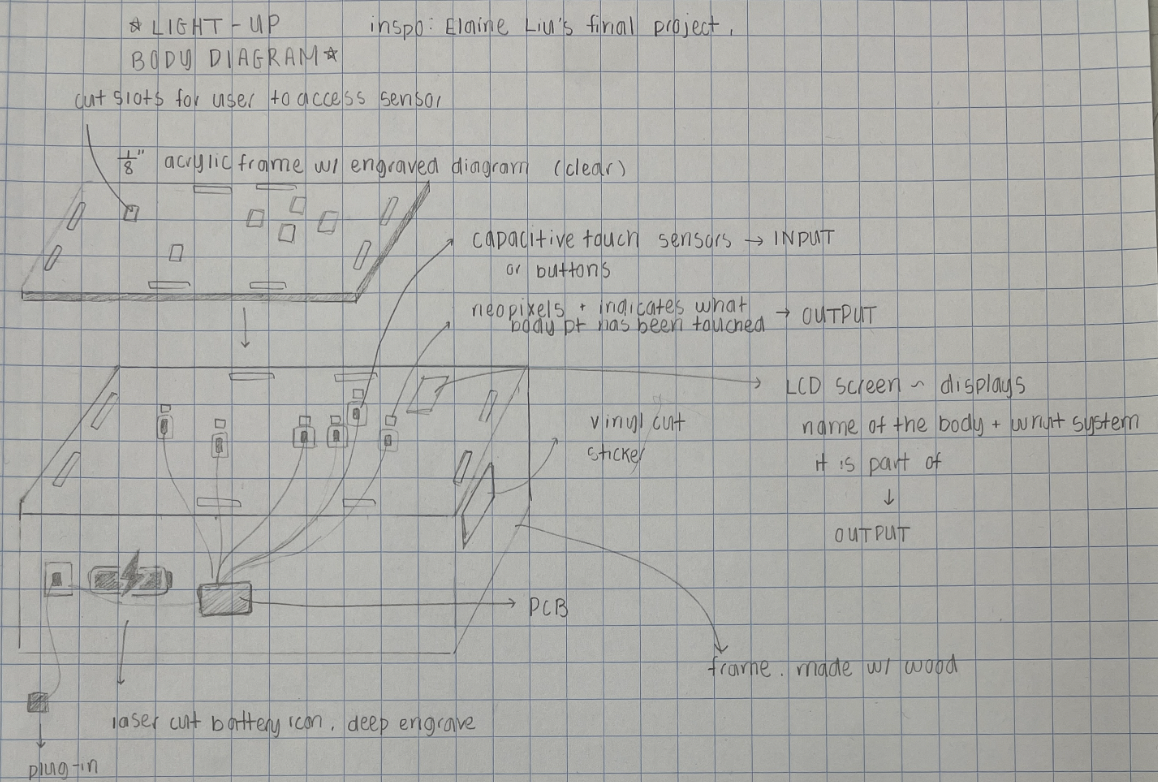 ☆ LIGHT-UP
BODY DIAGRAM ☆
inspo: Elaine Liu's final project.
cut slots for user to access sensor
1/8" acrylic frame w/ engraved diagram (clear)
capacitive touch sensors → INPUT
or buttons
neopixels + indicates what
body pt has been touched → OUTPUT
LCD screen ~ displays
name of the body + what system
it is part of
↓
OUTPUT
vinyl cut
sticker
PCB
frame. made w/ wood
laser cut battery icon, deep engrave
plug-in